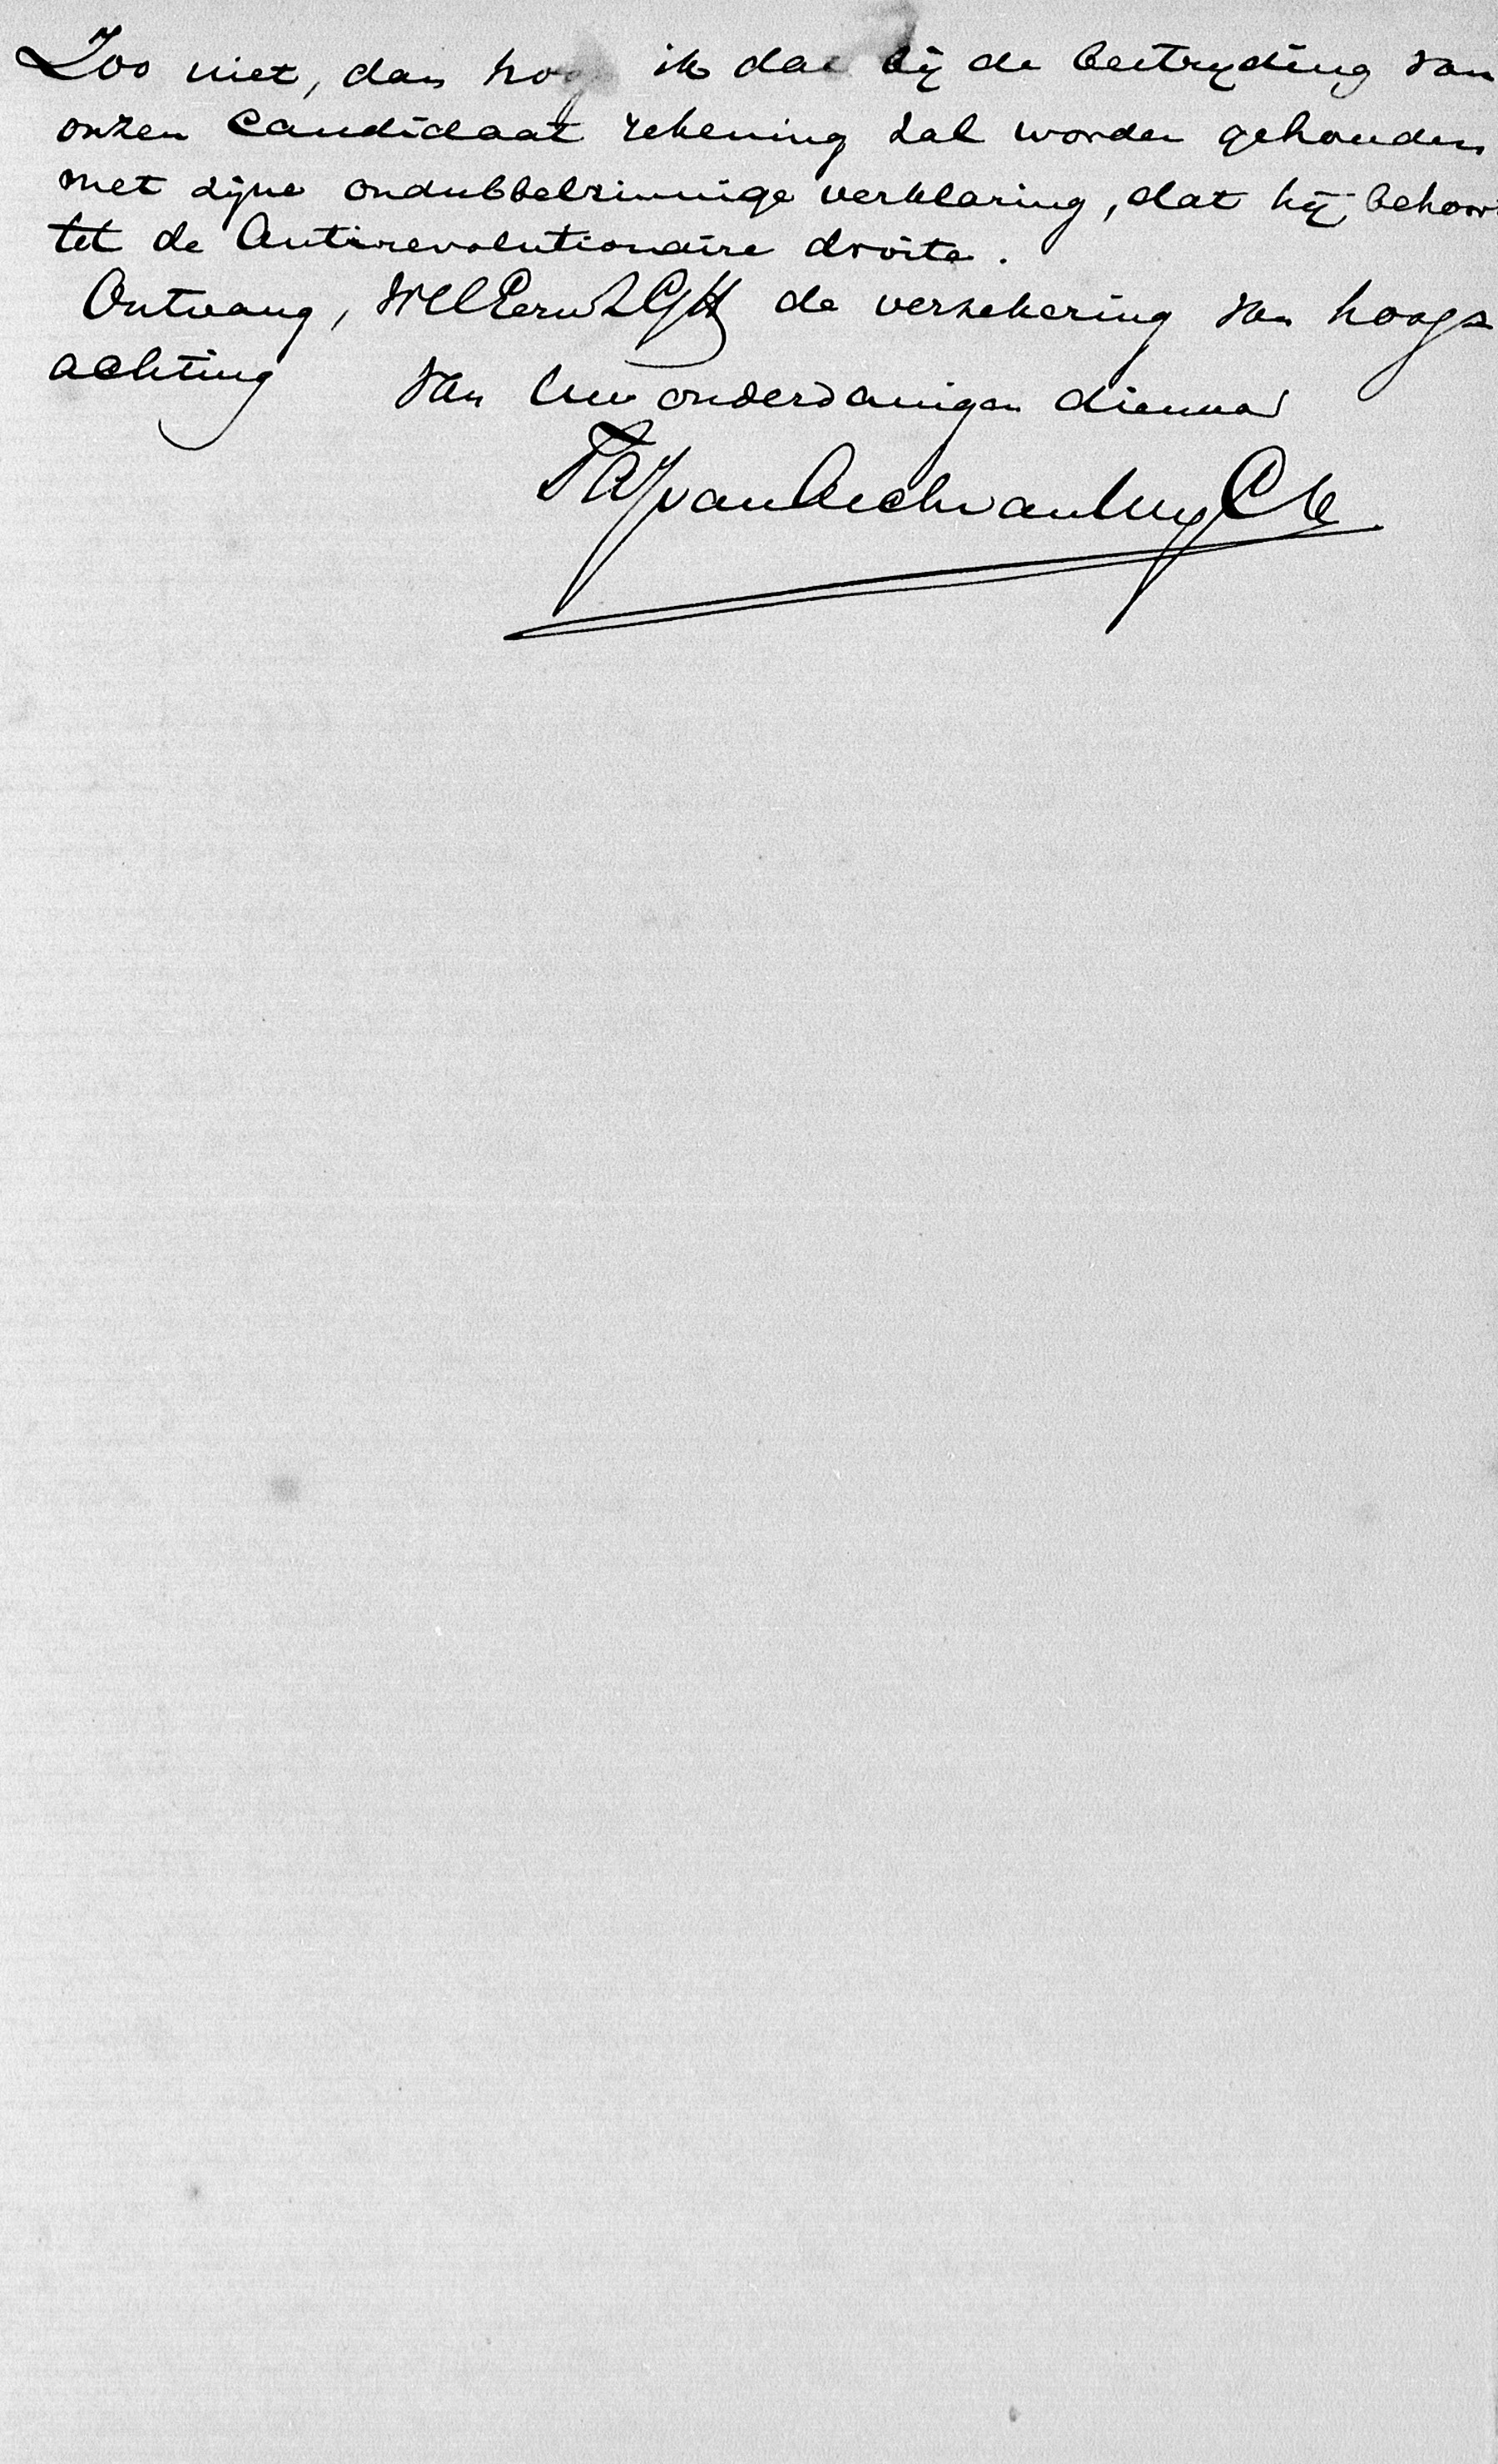 Zoo niet, dan hoop ik dat bij de bestryding van
onzen Candidaat rekening zal worden gehouden
met zijne ondubbelzinnige verklaring, dat hij behoor
tot de Antirevolutionaire droite.
Ontvang, de verzekering van hoog
achting van Uw onderdanigen dienaar